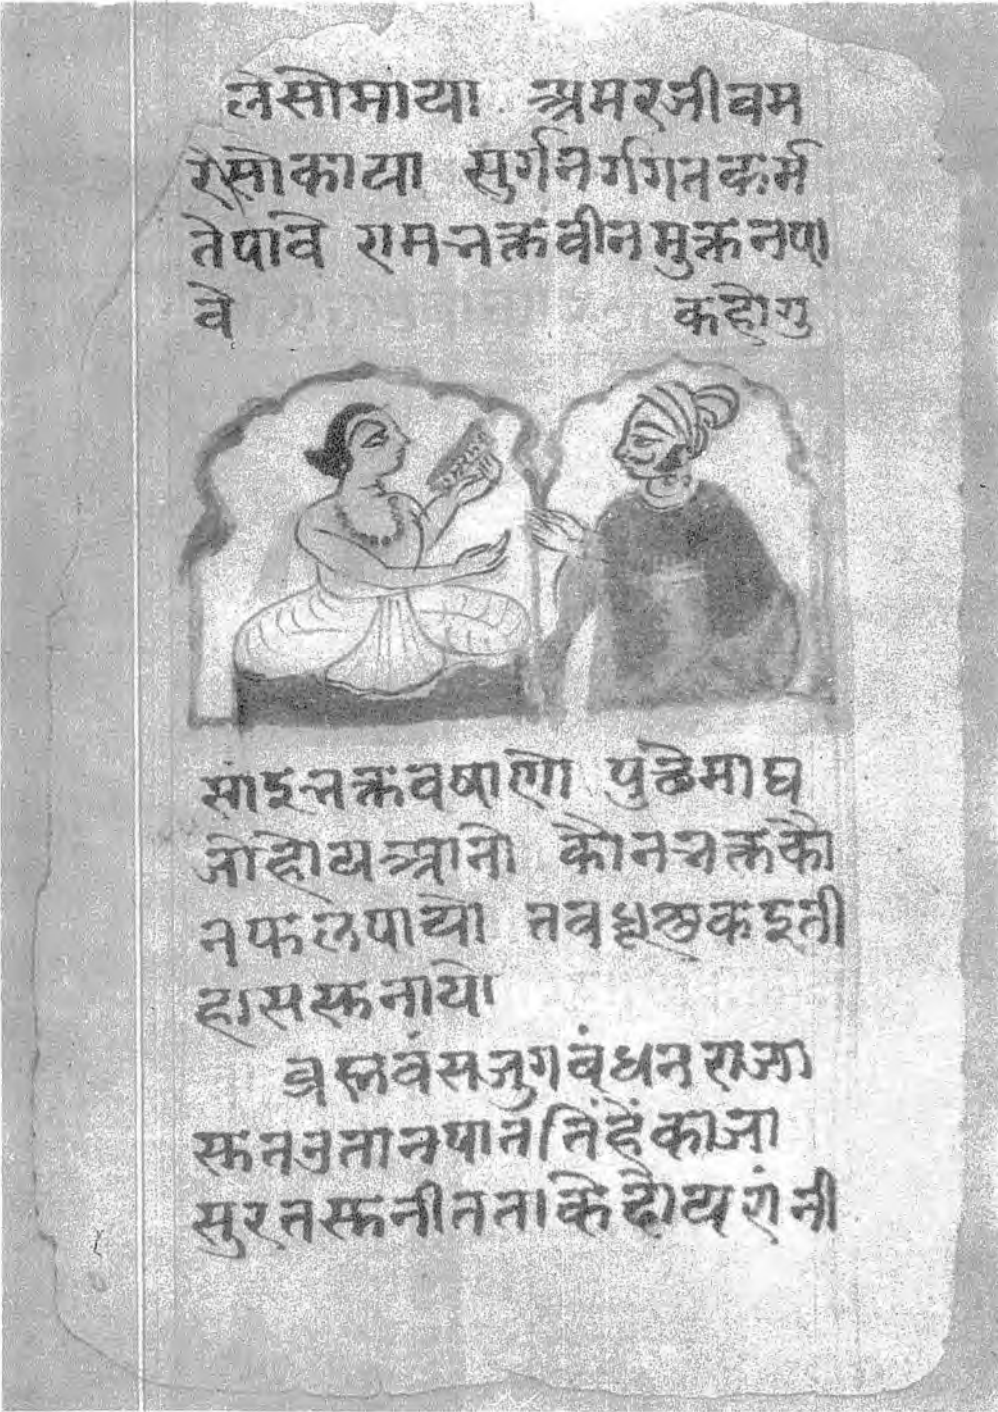 लेसोमाया अमरजीवम
रेसोकाया सुर्गनर्गगिनकर्म
तेपावे रामभक्तवीनमुक्तनपा
वे कहोगु
सांइभक्तवषाणो पुछेमाघ
जोहोयआनो कोनभक्तको
नफलपायो तवध्रूकइती
हाससुनायो
ब्रह्मवंसजुगबंधनराजा
सुतनुतानपातनिंहेंकाजा
सुरतसुनीतताकेहोयरांनी